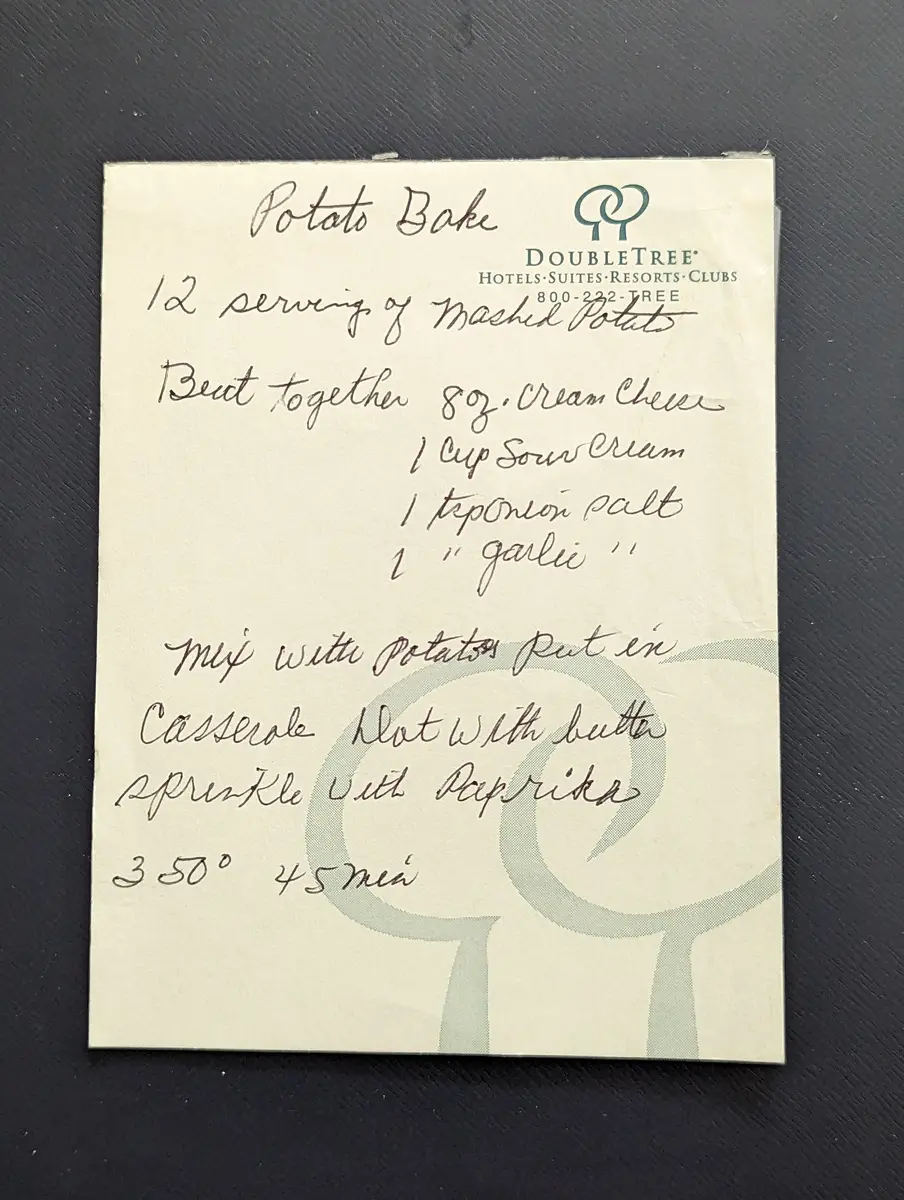 Potato Bake
DOUBLETREE®
HOTELS·SUITES·RESORTS·CLUBS
800-222-TREE
12 serving of Mashed Potato
Beat together 8oz. Cream Cheese
1 Cup Sour Cream
1 tsp onion salt
1 " garlic "
Mix with Potatoes Put in
Casserole Dot with butter
sprinkle with Paprika
350° 45 min